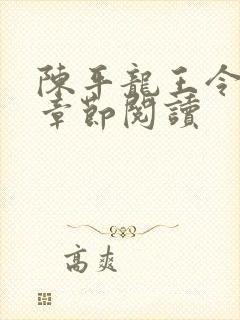 陳平龍王令
章節閱讀
高爽